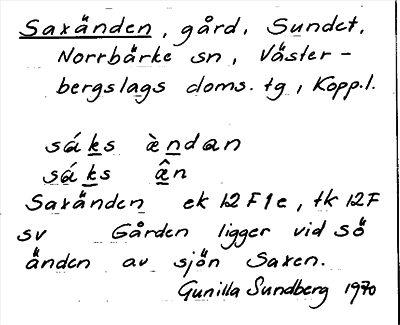 Saxänden, gård, Sundet,
Norrbärke sn, Väster-
bergslags doms. tg, Kopp.l.
sáks àndan
sáks ân
Saxänden ek 12F1e, tk 12F
sv Gården ligger vid sö
änden av sjön Saxen.
Gunilla Sundberg 1970